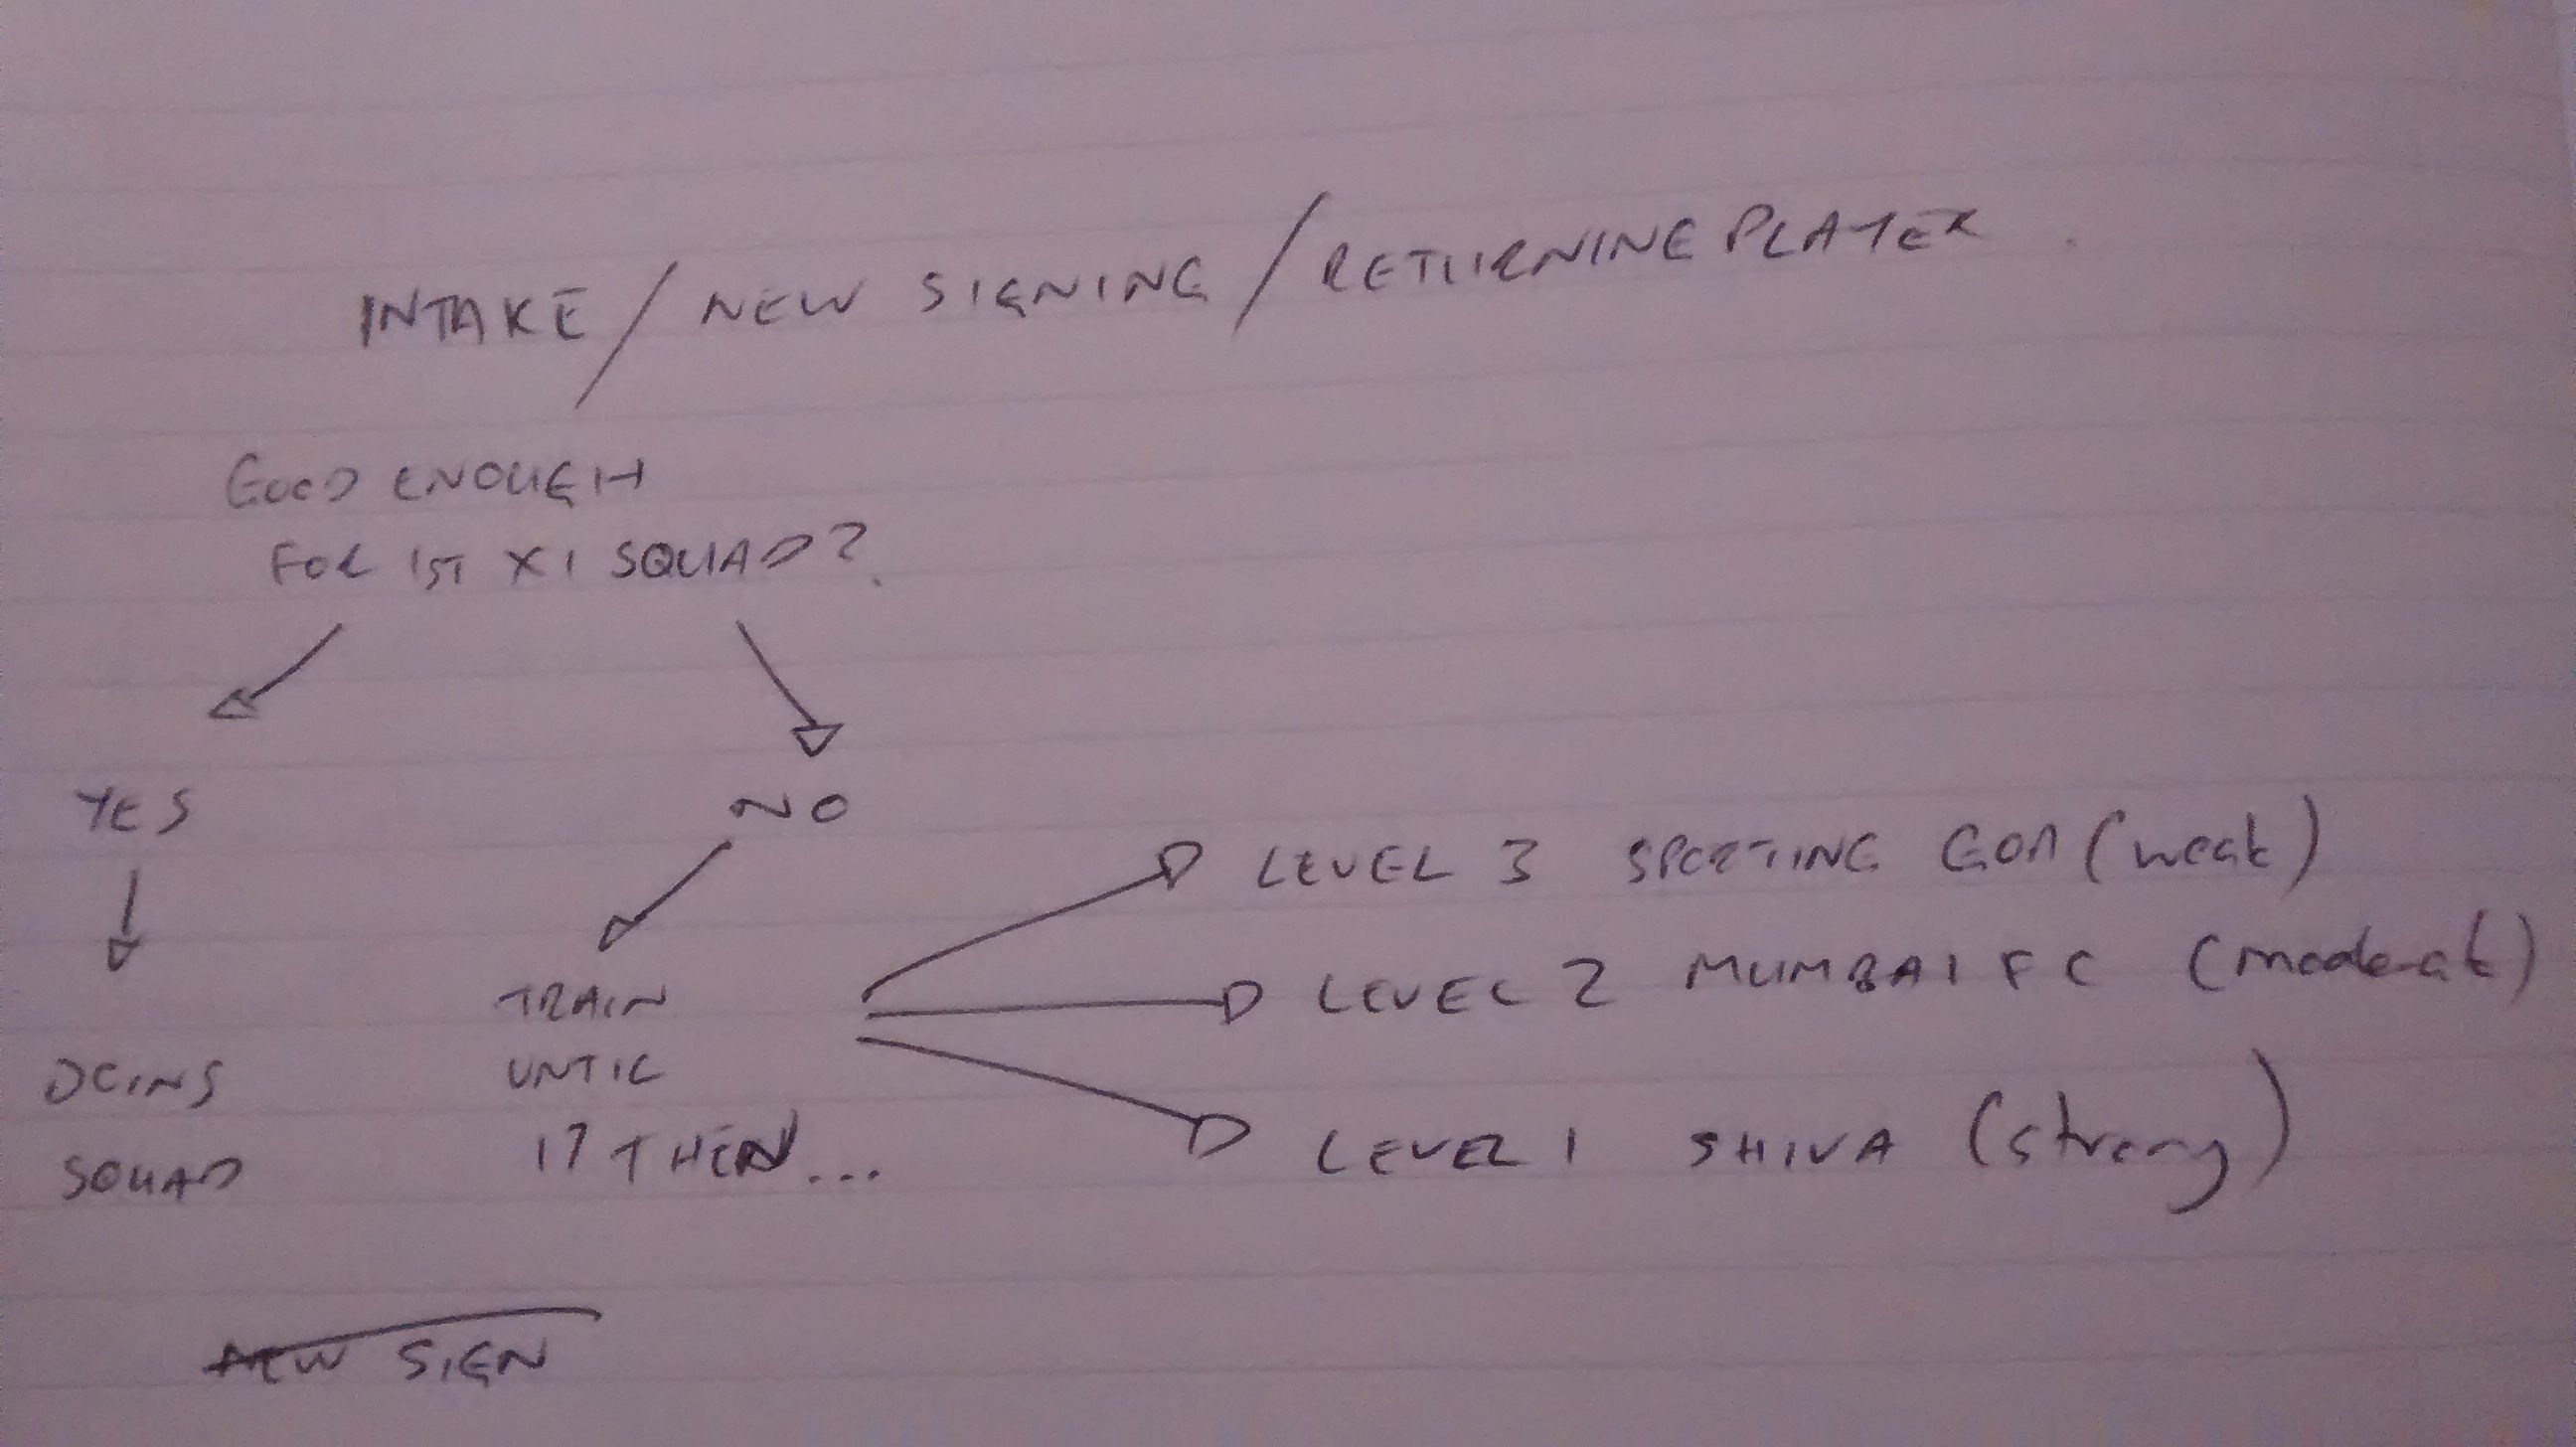 INTAKE / NEW SIGNING / RETURNING PLAYER
GOOD ENOUGH
FOR 1ST XI SQUAD?
YES
NO
LEVEL 3 SPORTING GOA (weak)
LEVEL 2 MUMBAI FC (moderate)
LEVEL 1 SHIVA (strong)
TRAIN
UNTIL
17 THEN...
SQUAD
NEW SIGN